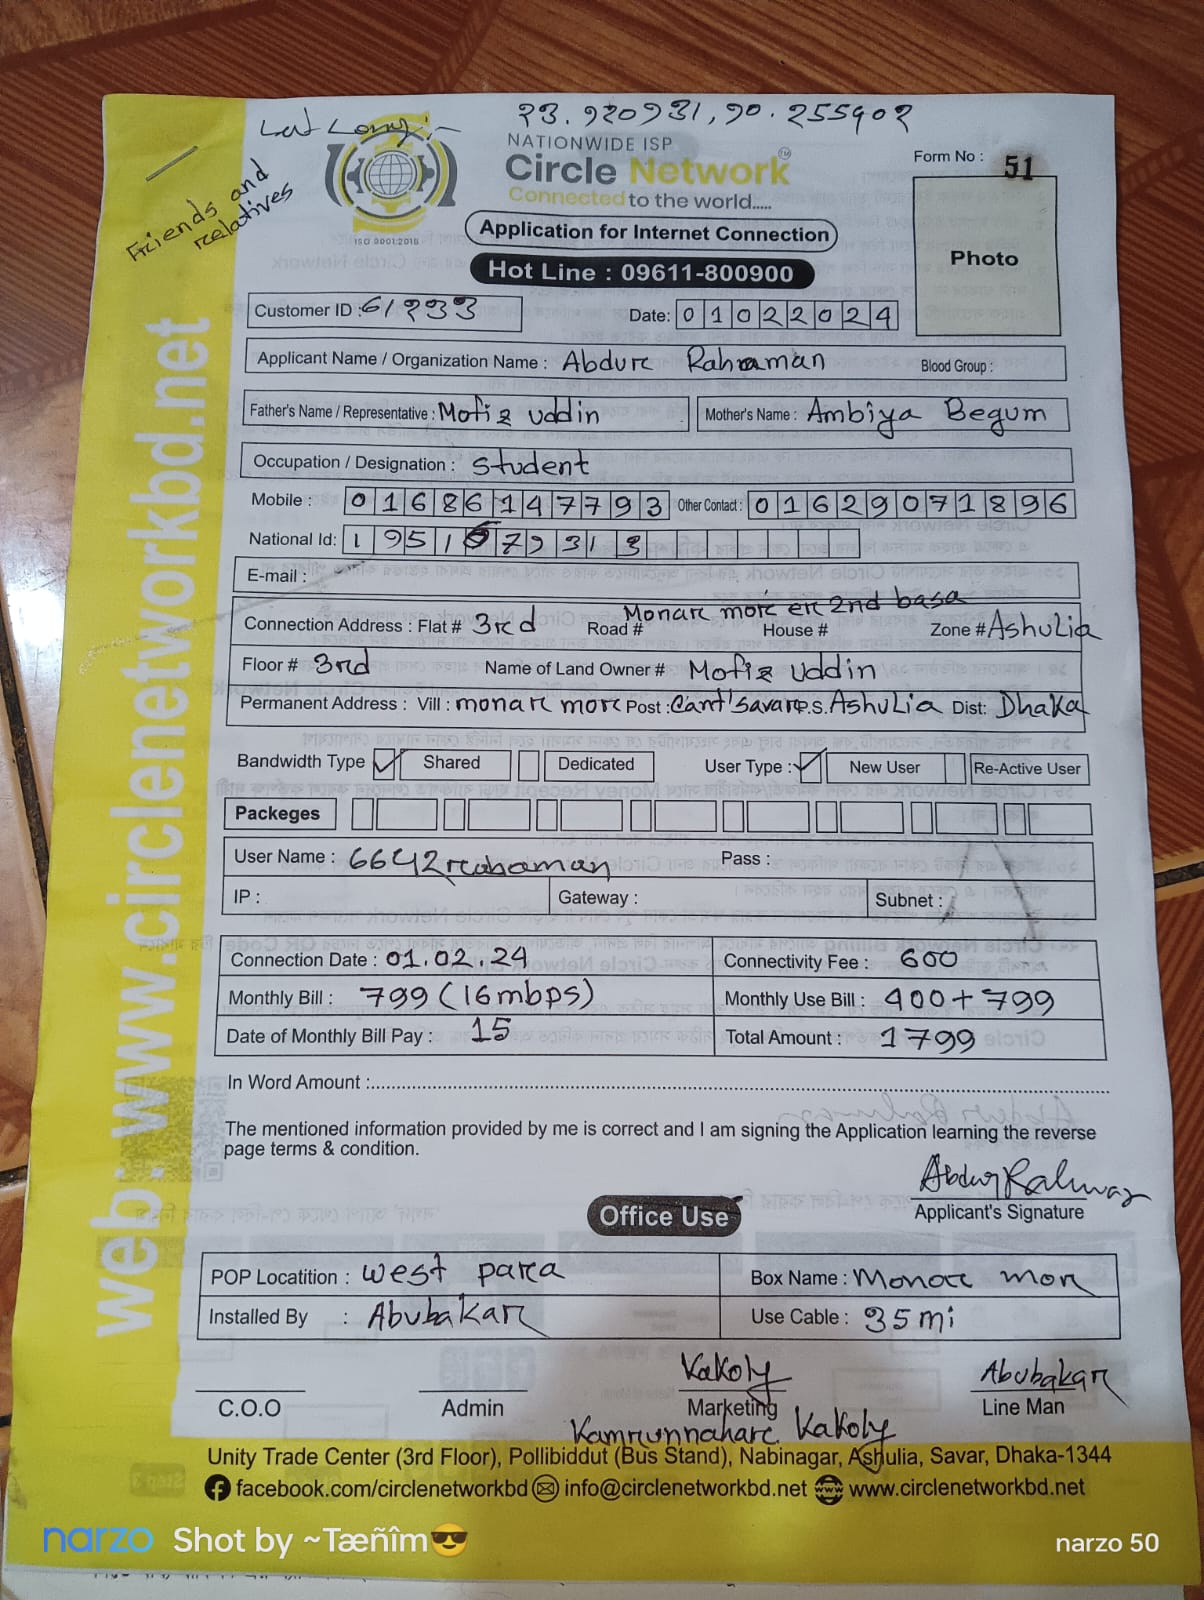 Lat Long:-
23.920931, 90.255902
Friends and
relatives
NATIONWIDE ISP
Circle Network TM
Connected to the world.....
ISO 9001:2015
Form No : 51
Photo
Application for Internet Connection
Hot Line : 09611-800900
Customer ID : 61233
Date: 01022024
Applicant Name / Organization Name : Abdur Rahaman Blood Group :
Father's Name / Representative : Mofiz uddin Mother's Name : Ambiya Begum
Occupation / Designation : Student
Mobile : 01686147793 Other Contact : 01629071896
National Id:
E-mail :
Monar more er 2nd basa
Connection Address : Flat # 3rd Road # House # Zone # Ashulia
Floor # 3rd Name of Land Owner # Mofiz uddin
Permanent Address : Vill : monar more Post : Cant'savar P.S. Ashulia Dist: Dhaka
Bandwidth Type ✓ Shared Dedicated User Type : ✓ New User Re-Active User
Packeges
User Name : 6642rahaman Pass :
IP : Gateway : Subnet :
Connection Date : 01.02.24 Connectivity Fee : 600
Monthly Bill : 799 (16mbps) Monthly Use Bill : 400+799
Date of Monthly Bill Pay : 15 Total Amount : 1799
In Word Amount :
The mentioned information provided by me is correct and I am signing the Application learning the reverse
page terms & condition.
Abdur Rahman
Applicant's Signature
Office Use
POP Locatition : west para Box Name : Monar mor
Installed By : Abubakar Use Cable : 35 mi
Kakoly Abubakar
C.O.O Admin Marketing Line Man
Kamrunnahar Kakoly
Unity Trade Center (3rd Floor), Pollibiddut (Bus Stand), Nabinagar, Ashulia, Savar, Dhaka-1344
facebook.com/circlenetworkbd info@circlenetworkbd.net www.circlenetworkbd.net
web: www.circlenetworkbd.net
narzo Shot by ~Tæñîm😎 narzo 50